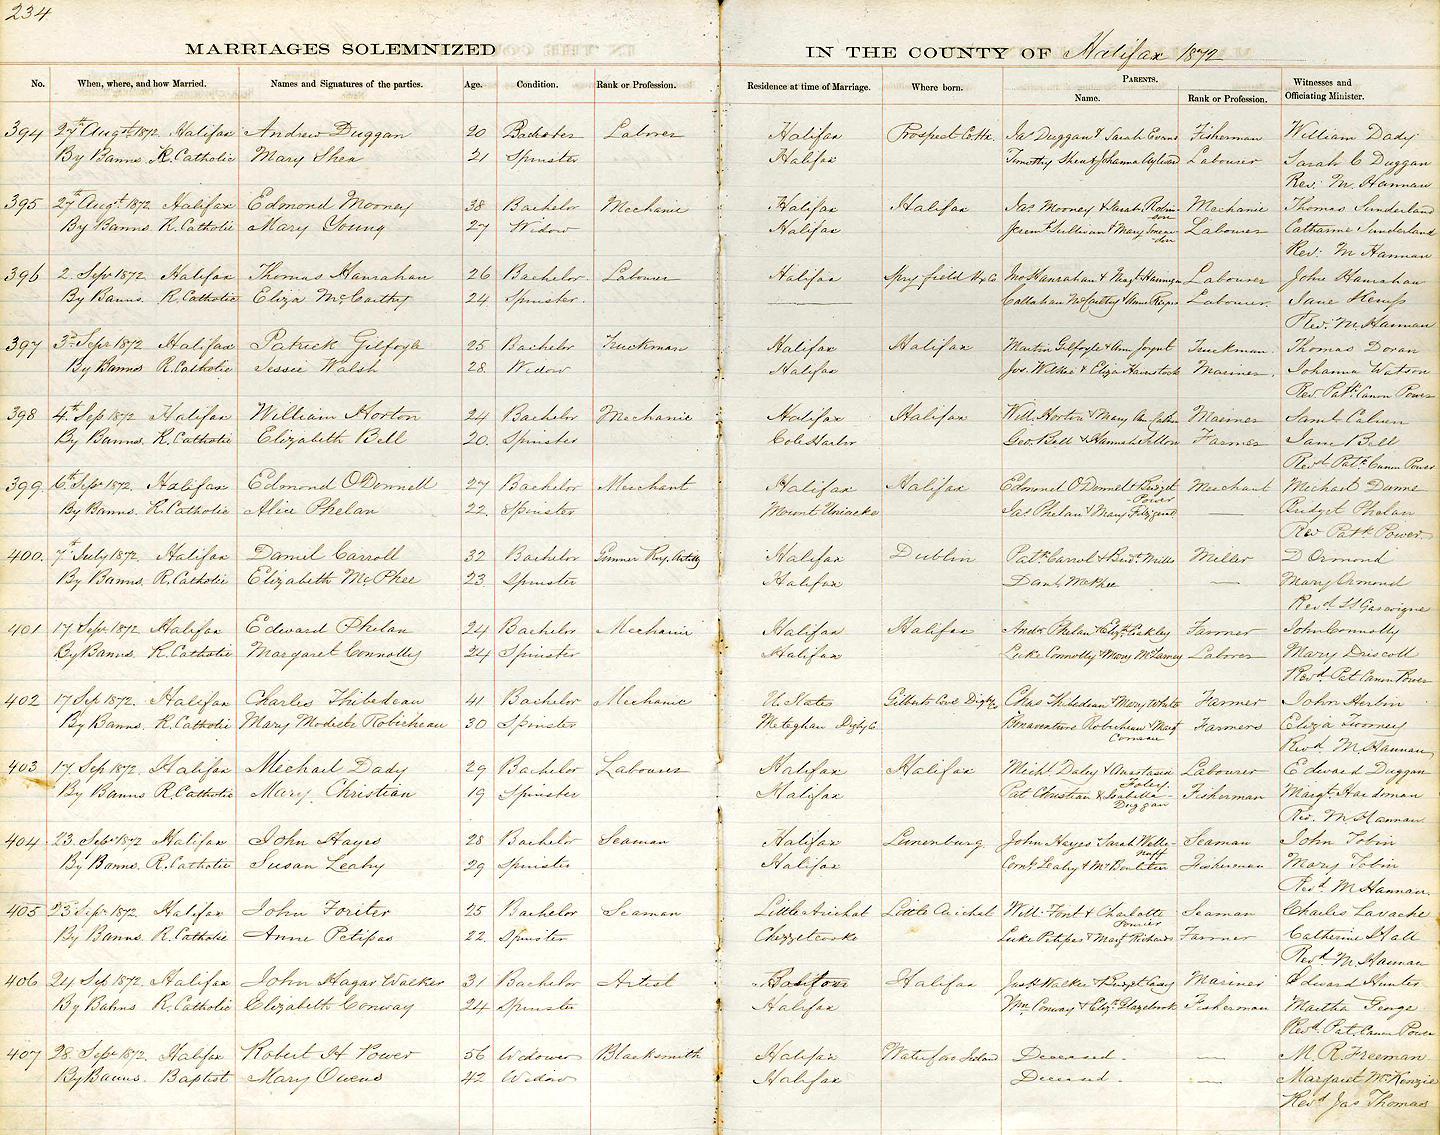 234
MARRIAGES SOLEMNIZED IN THE COUNTY OF Halifax 1872
No. When, where, and how Married. Names and Signatures of the parties. Age. Condition. Rank or Profession. Residence at time of Marriage. Where born. PARENTS. Name. Rank or Profession. Witnesses and Officiating Minister.
394 27th Augst. 1872 Halifax Andrew Duggan 20 Bachelor Laborer Halifax Prospect Co. Hx. Jas Duggan & Sarah Evans Fisherman William Dady
By Banns R. Catholic Mary Shea 21 Spinster Halifax Timothy Shea & Johanna Aylward Labourer Sarah C Duggan
Rev. M. Hannan
395 27th Augt. 1872 Halifax Edmond Mooney 38 Bachelor Mechanic Halifax Halifax Jas. Mooney & Sarah Robinson Mechanic Thomas Sunderland
By Banns R. Catholic Mary Young 27 Widow Halifax Sullivan & Mary Labourer Catharine Sunderland
Rev. M Hannan
396 2. Sepr 1872 Halifax Thomas Hanrahan 26 Bachelor Labourer Halifax Spry field Hx Co. Jno Hanrahan & Margt. Hannigan Labourer John Hanrahan
By Banns. R. Catholic Eliza McCarthy 24 Spinster. Callahan McCarthy & Labourer. Jane Kemp
Rev. M Hannan
397 3rd Sepr 1872 Halifax Patrick Gilfoyle 25 Bachelor Truckman Halifax Halifax Martin Gilfoyle & Ann Joynt Truckman. Thomas Doran
By Banns R. Catholic Jessie Walsh 28. Widow Halifax Jos. Wilkie & Eliza Mariner. Johanna Watson
Rev. Patk. Canon Power
398 4th Sep 1872 Halifax William Horton 24 Bachelor Mechanic Halifax Halifax Will. Horton & Mary Ann Mariner
By Banns. R. Catholic Elizabeth Bell 20. Spinster Cole Harbor Geo. Bell & Hannah Farmer Jane Bell
Revd. Patk. Canon Power
399. 6th Sepr 1872. Halifax Edmond O'Donnell 27 Bachelor Merchant Halifax Halifax Edmond O'Donnell & Bridget Power Merchant Michael Dunne
By Banns. R. Catholic Alice Phelan 22. Spinster Mount Uniacke Jas. Phelan & Mary Fitzgerald Bridget Phelan
Rev Patk. Power
400. 7th July 1872. Halifax Daniel Carroll 32 Bachelor Gunner Roy. Artilly Halifax Dublin Patk. Carrol & Bridt. Mills Miller D Ormond
By Banns, R. Catholic Elizabeth McPhee 23. Spinster Halifax Danl. McPhee Mary Ormond
Revd
401 17 Sepr 1872 Halifax Edward Phelan 24 Bachelor Mechanic Halifax Halifax Andw Phelan & Elizth. Farmer John Connolly
By Banns. R. Catholic Margaret Connolly 24 Spinster Halifax Luke Connolly & Mary Laborer Mary Driscoll
Revd Pat Canon Power
402 17 Sep 1872. Halifax Charles Thibedeau 41 Bachelor Mechanic U. States Gilberts Cove Digby Co Chas Thibedeau & Mary White Farmer John
By Banns, R. Catholic Mary Modeste Robicheau 30 Spinster Meteghan Digby C Bonaventure Robicheau & Margt Comeau Farmers Eliza Twomey
Revd M Hannan
403 17. Sep 1872 Halifax Michael Dady 29 Bachelor Labourer Halifax Halifax Michl. Daley & Anastasia Foley Labourer Edward Duggan
By Banns R. Catholic Mary Christian 19 Spinster Halifax Pat Christian & Isabella Duggan Fisherman Margt. Hardman
Rev. M Hannan
404 23. Sepr 1872 Halifax John Hayes 28 Bachelor Seaman Halifax Lunenburg. John Hayes & Sarah Seaman John Tobin
By Banns. R. Catholic Susan Leahy 29 Spinster Halifax Leahy & Fisherman Mary Tobin
Revd. M Hannan.
405 23rd Sepr 1872. Halifax John 25 Bachelor Seaman Little Arichat Little Arichat Will. & Charlotte Seaman Charles Lavache
By Banns R. Catholic Anne Petipas 22. Spinster Chezzetcooke Luke Petipas & Margt Richards Farmer Catherine Hall
Revd M. Hannan
406 24 Sep 1872. Halifax John Hagar Walker 31 Bachelor Artist Halifax Josh. Walker & Bridget Casey Mariner Edward Hunter
By Banns R. Catholic Elizabeth Conway 24 Spinster Halifax Wm. Conway & Elizth. Glazebrook Fisherman Martha George
Revd. Pat. Canon Power
407 28. Sepr 1872. Halifax Robert H Power 56 Widower Blacksmith Halifax Waterford Ireland Deceased. M. R. Freeman
By Banns. Baptist Mary Owens 42 Widow Halifax Deceased. Margaret McKenzie
Revd Jas Thomas